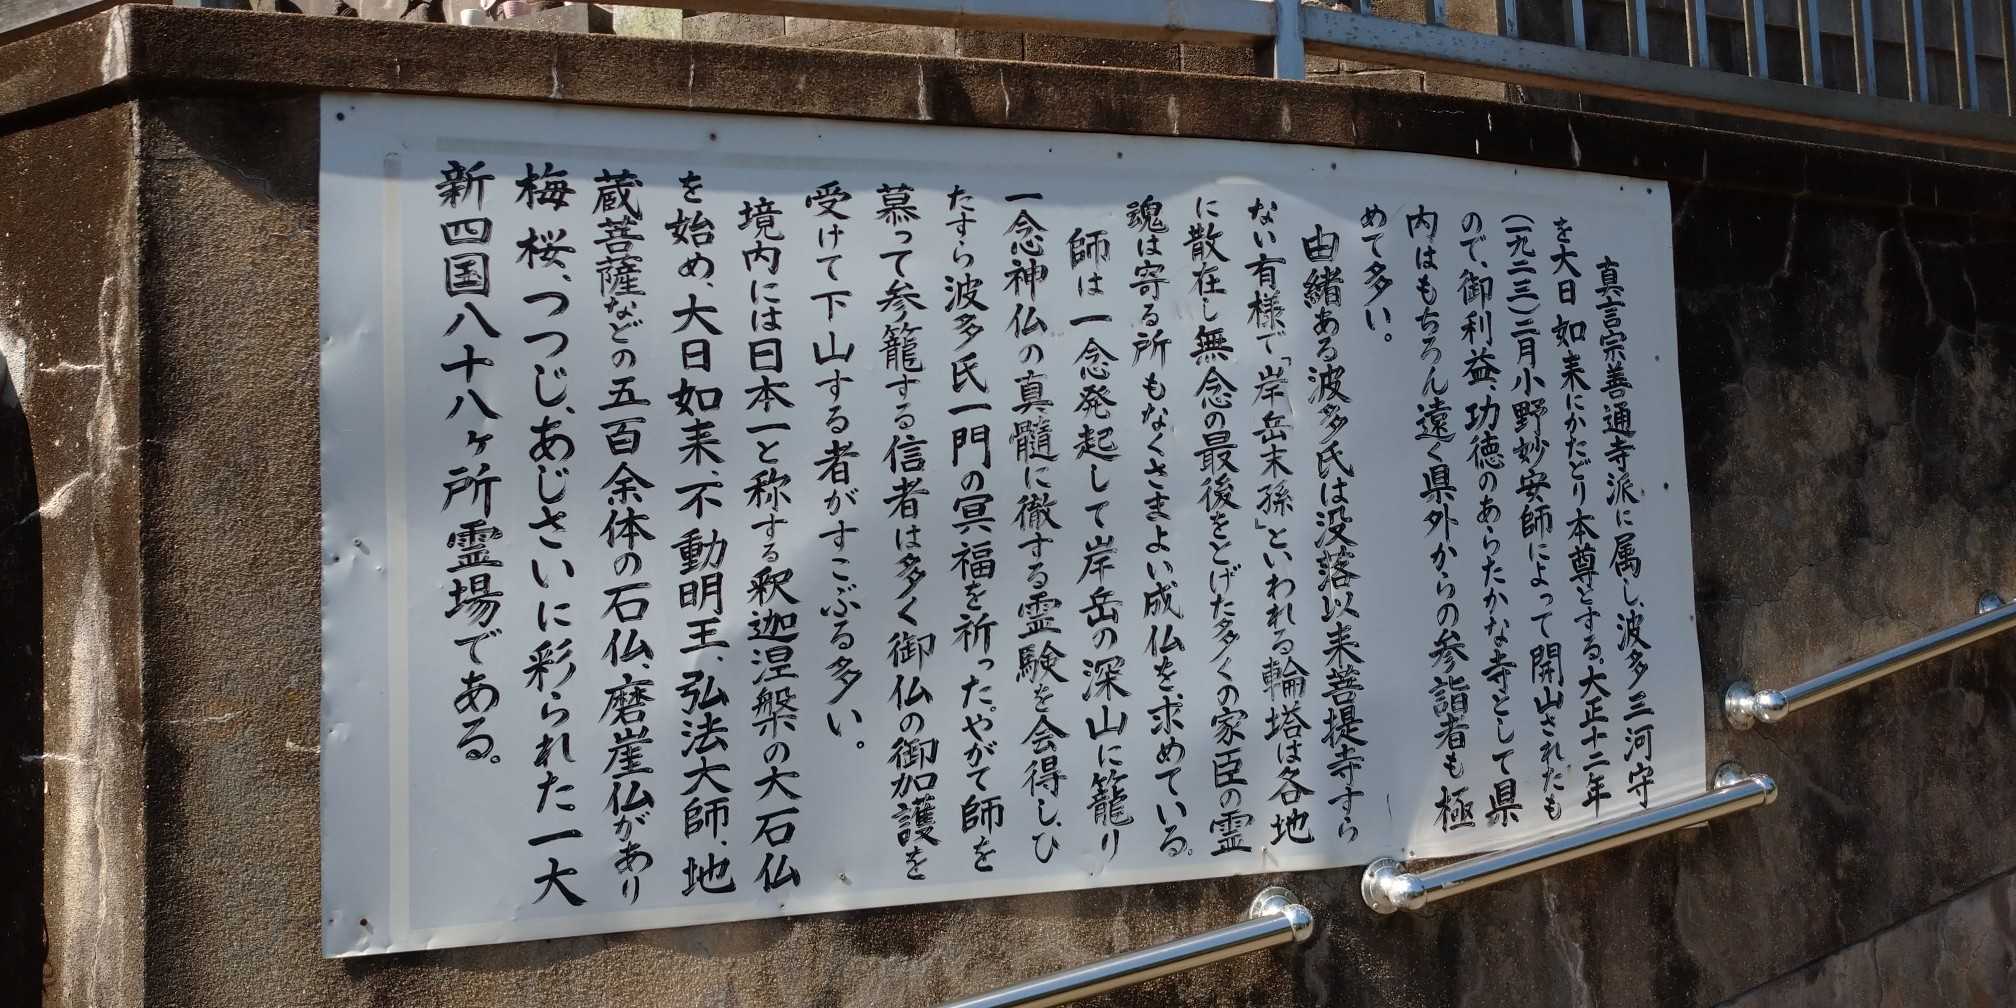 真言宗善通寺派に属し、波多三河守
を大日如来にかたどり本尊とする。大正十二年
(一九二三)二月小野妙安師によって開山されたも
ので、御利益、功徳のあらたかな寺として県
内はもちろん遠く県外からの参詣者も極
めて多い。
由緒ある波多氏は没落以来菩提寺すら
ない有様で「岸岳末孫」といわれる輪塔は各地
に散在し無念の最後をとげた多くの家臣の霊
魂は寄る所もなくさまよい成仏を求めている。
師は一念発起して岸岳の深山に籠り
一念神仏の真髓に徹する霊験を会得し、ひ
たすら波多氏一門の冥福を祈った。やがて師を
慕って参籠する信者は多く御仏の御加護を
受けて下山する者がすこぶる多い。
境内には日本一と称する釈迦涅槃の大石仏
を始め、大日如来、不動明王、弘法大師、地
蔵菩薩などの五百余体の石仏、磨崖仏があり
梅、桜、つつじ、あじさいに彩られた一大
新四国八十八ヶ所霊場である。